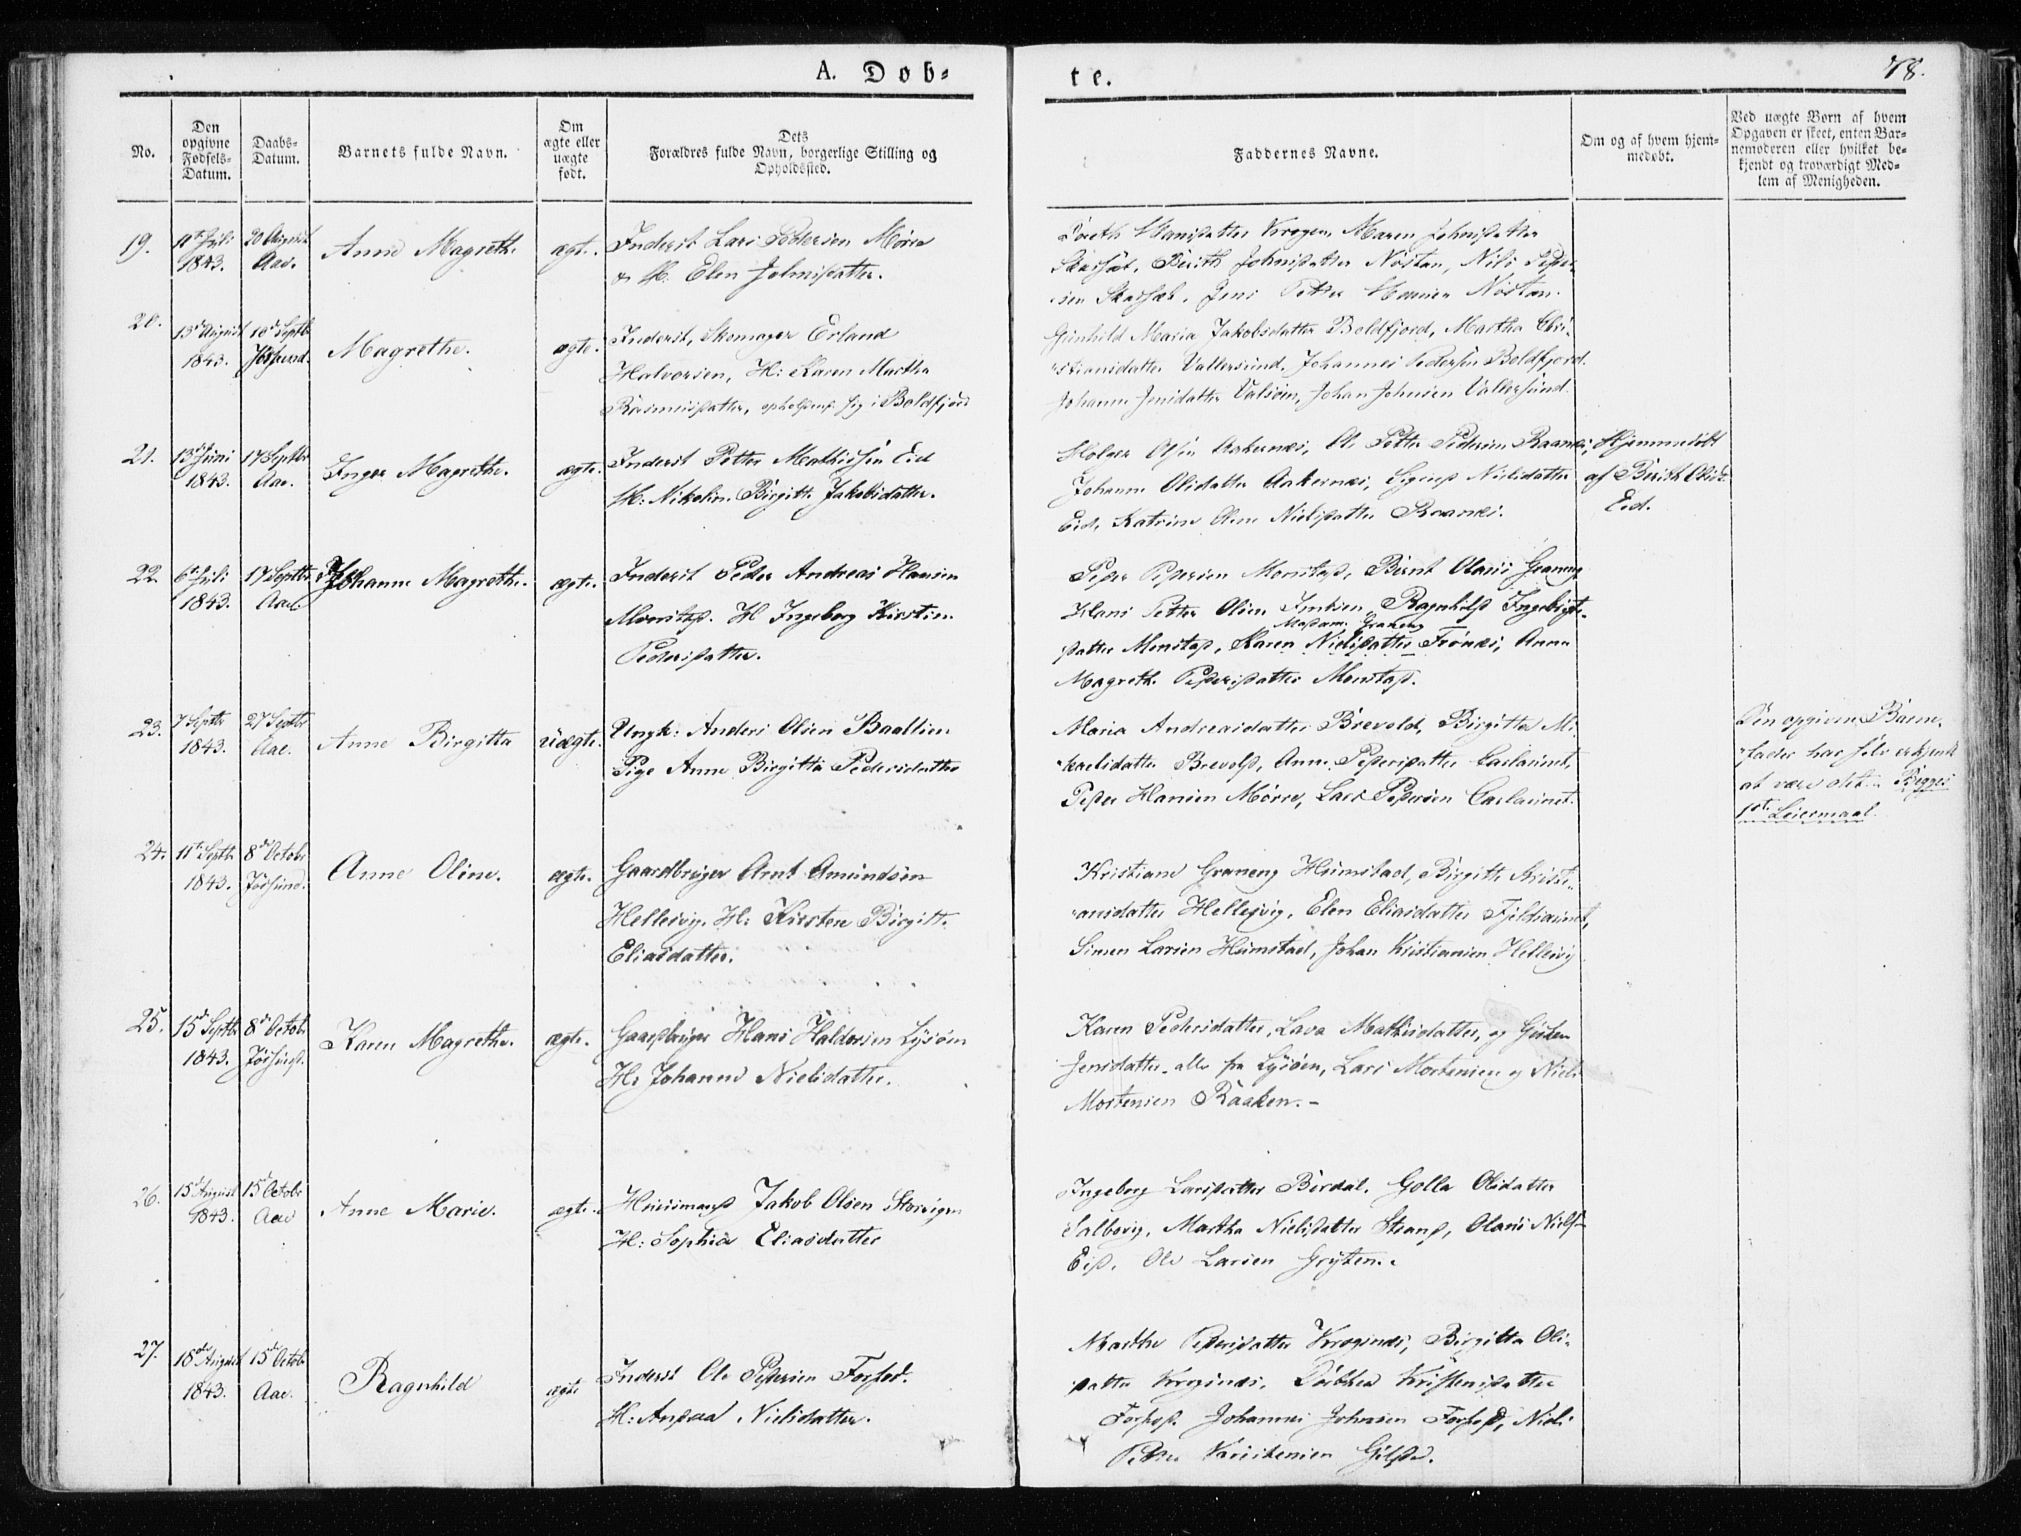 A. Døb=
te.
78.
No.
Den opgivne Fødsels-Datum.
Daabs-Datum.
Barnets fulde Navn.
Om ægte eller uægte født.
Dets Forældres fulde Navn, borgerlige Stilling og Opholdssted.
Faddernes Navne.
Om og af hvem hjem-medøbt.
Ved uægte Børn af hvem Opgaven er skeet, enten Bar-nemoderen eller hvilket be-kjendt og troværdigt Med-lem af Menigheden.
19.
11te Juli 1843.
20 August Aae.
Anne Magrethe.
ægte.
Inderst Lars Pedersen Mørre
& H. Elen Johnsdatter.
Maren Johnsdatter
Berith Johnsdatter Nøstan, Nils Peder-
sen Skarsæt, Jens Petter Nøstan.
20.
13de August 1843.
10de Septbr Jøssund.
Magrethe.
ægte.
Inderst, Skomager Erland
Halvorsen, H: Karen Martha
Rasmusdatter, opholdende sig i Boldfjord
Gunhild Maria Jakobsdatter Boldfjord, Martha Chri-
stiansdatter Vallersund, Johannes Pedersen Boldfjord.
Johanna Jensdatter Valsøen, Johan Johnsen Vallersund.
21.
13de Juni 1843.
17 Septbr Aae.
Inger Magrethe.
ægte.
Inderst Petter Mathisen Eid
H: Nikoline Birgitte Jakobsdatter.
Holger Olsen Aakernæs, Ole Petter Pedersen Raanæs,
Johanna Olsdatter Aakernæs, Nielsdatter
Eid, Katrine Olene Nielsdatter Raanæs.
Hjemmedøbt
af Berith Olsd.
Eid.
22.
6te Juli 1843.
17 Septbr Aae.
Johanne Magrethe.
ægte.
Inderst Peder Andreas Hansen
Monstad. H Ingeborg Kirstine
Pedersdatter.
Peder Pedersen Monstad, Bernt Olaus Graneng
Hans Petter Olsen Ragnhild Ingebrigt-
datter Monstad, Karen Nielsdatter Frønæs, Anne
Madam Graneng
Magrethe Pedersdatter Monstad.
23.
7 Septbr 1843.
27 Septbr Aae.
Anne Birgitta
uægte.
Ungk: Anders Olsen Baallien
Pige Anne Birgitta Pedersdatter
Maria Andreasdatter Brevold, Birgitta Mi-
kaelsdatter Brevold, Anne Pedersdatter Carlsaunet,
Peder Hansen Mørre, Lars Pedersen Carlsaunet.
Den opgivne Barne-
fader har selv erkjendt
at være det. Begges
1ste Leiermaal.
24.
11te Septbr 1843.
8de Octobr Jøssund.
Anne Oline.
ægte.
Gaardbruger Arnt Amundsen
Hellesvig. H: Kirsten Birgitte
Eliasdatter.
Kristiane Graneng Humstad, Birgitte Kristi-
ansdatter Hellesvig, Elen Eliasdatter Fjeldsaunet,
Simen Larsen Humstad, Johan Kristiansen Hellesvig
25.
15de Septbr 1843.
8de Octobr Jøssund.
Karen Magrethe.
ægte.
Gaardbruger Hans Haldorsen Lysøen
H: Johanne Nielsdatter.
Karen Pedersdatter, Lava Mathisdatter, og
Jensdatter alle fra Lysøen, Lars Mortensen og Niels
Mortensen Raaken.-
26.
15de August 1843.
15de Octobr Aae
Anne Marie.
ægte.
Huusmand Jakob Olsen Storvigen
H: Sophia Eliasdatter
Ingeborg Larsdatter Berdal. Golla Olsdatter
Salbovig, Martha Nielsdatter Strand, Olaus Niels-
Eid. Ole Larsen Gryten.
27.
18de August 1843.
15de Octobr Aae.
Ragnhild
ægte
Inderst Ole Pedersen Forfod.
H: Nielsdatter.
Marthe Pedersdatter Krogenæs, Birgitta Ols-
datter Krogenæs, Dorthea Kristensdatter
Johannes Johnsen Niels
Petter